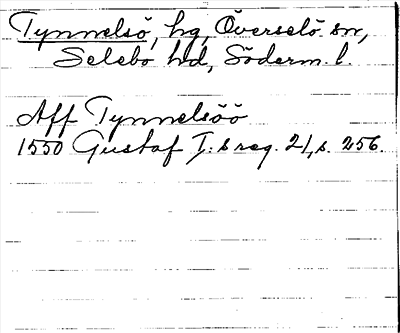 Tynnelsö, hg, Överselö sn,
Selebo hd, Söderm. l.
Aff Tynnelsöö
1550 Gustaf I:s reg. 21, s. 256.